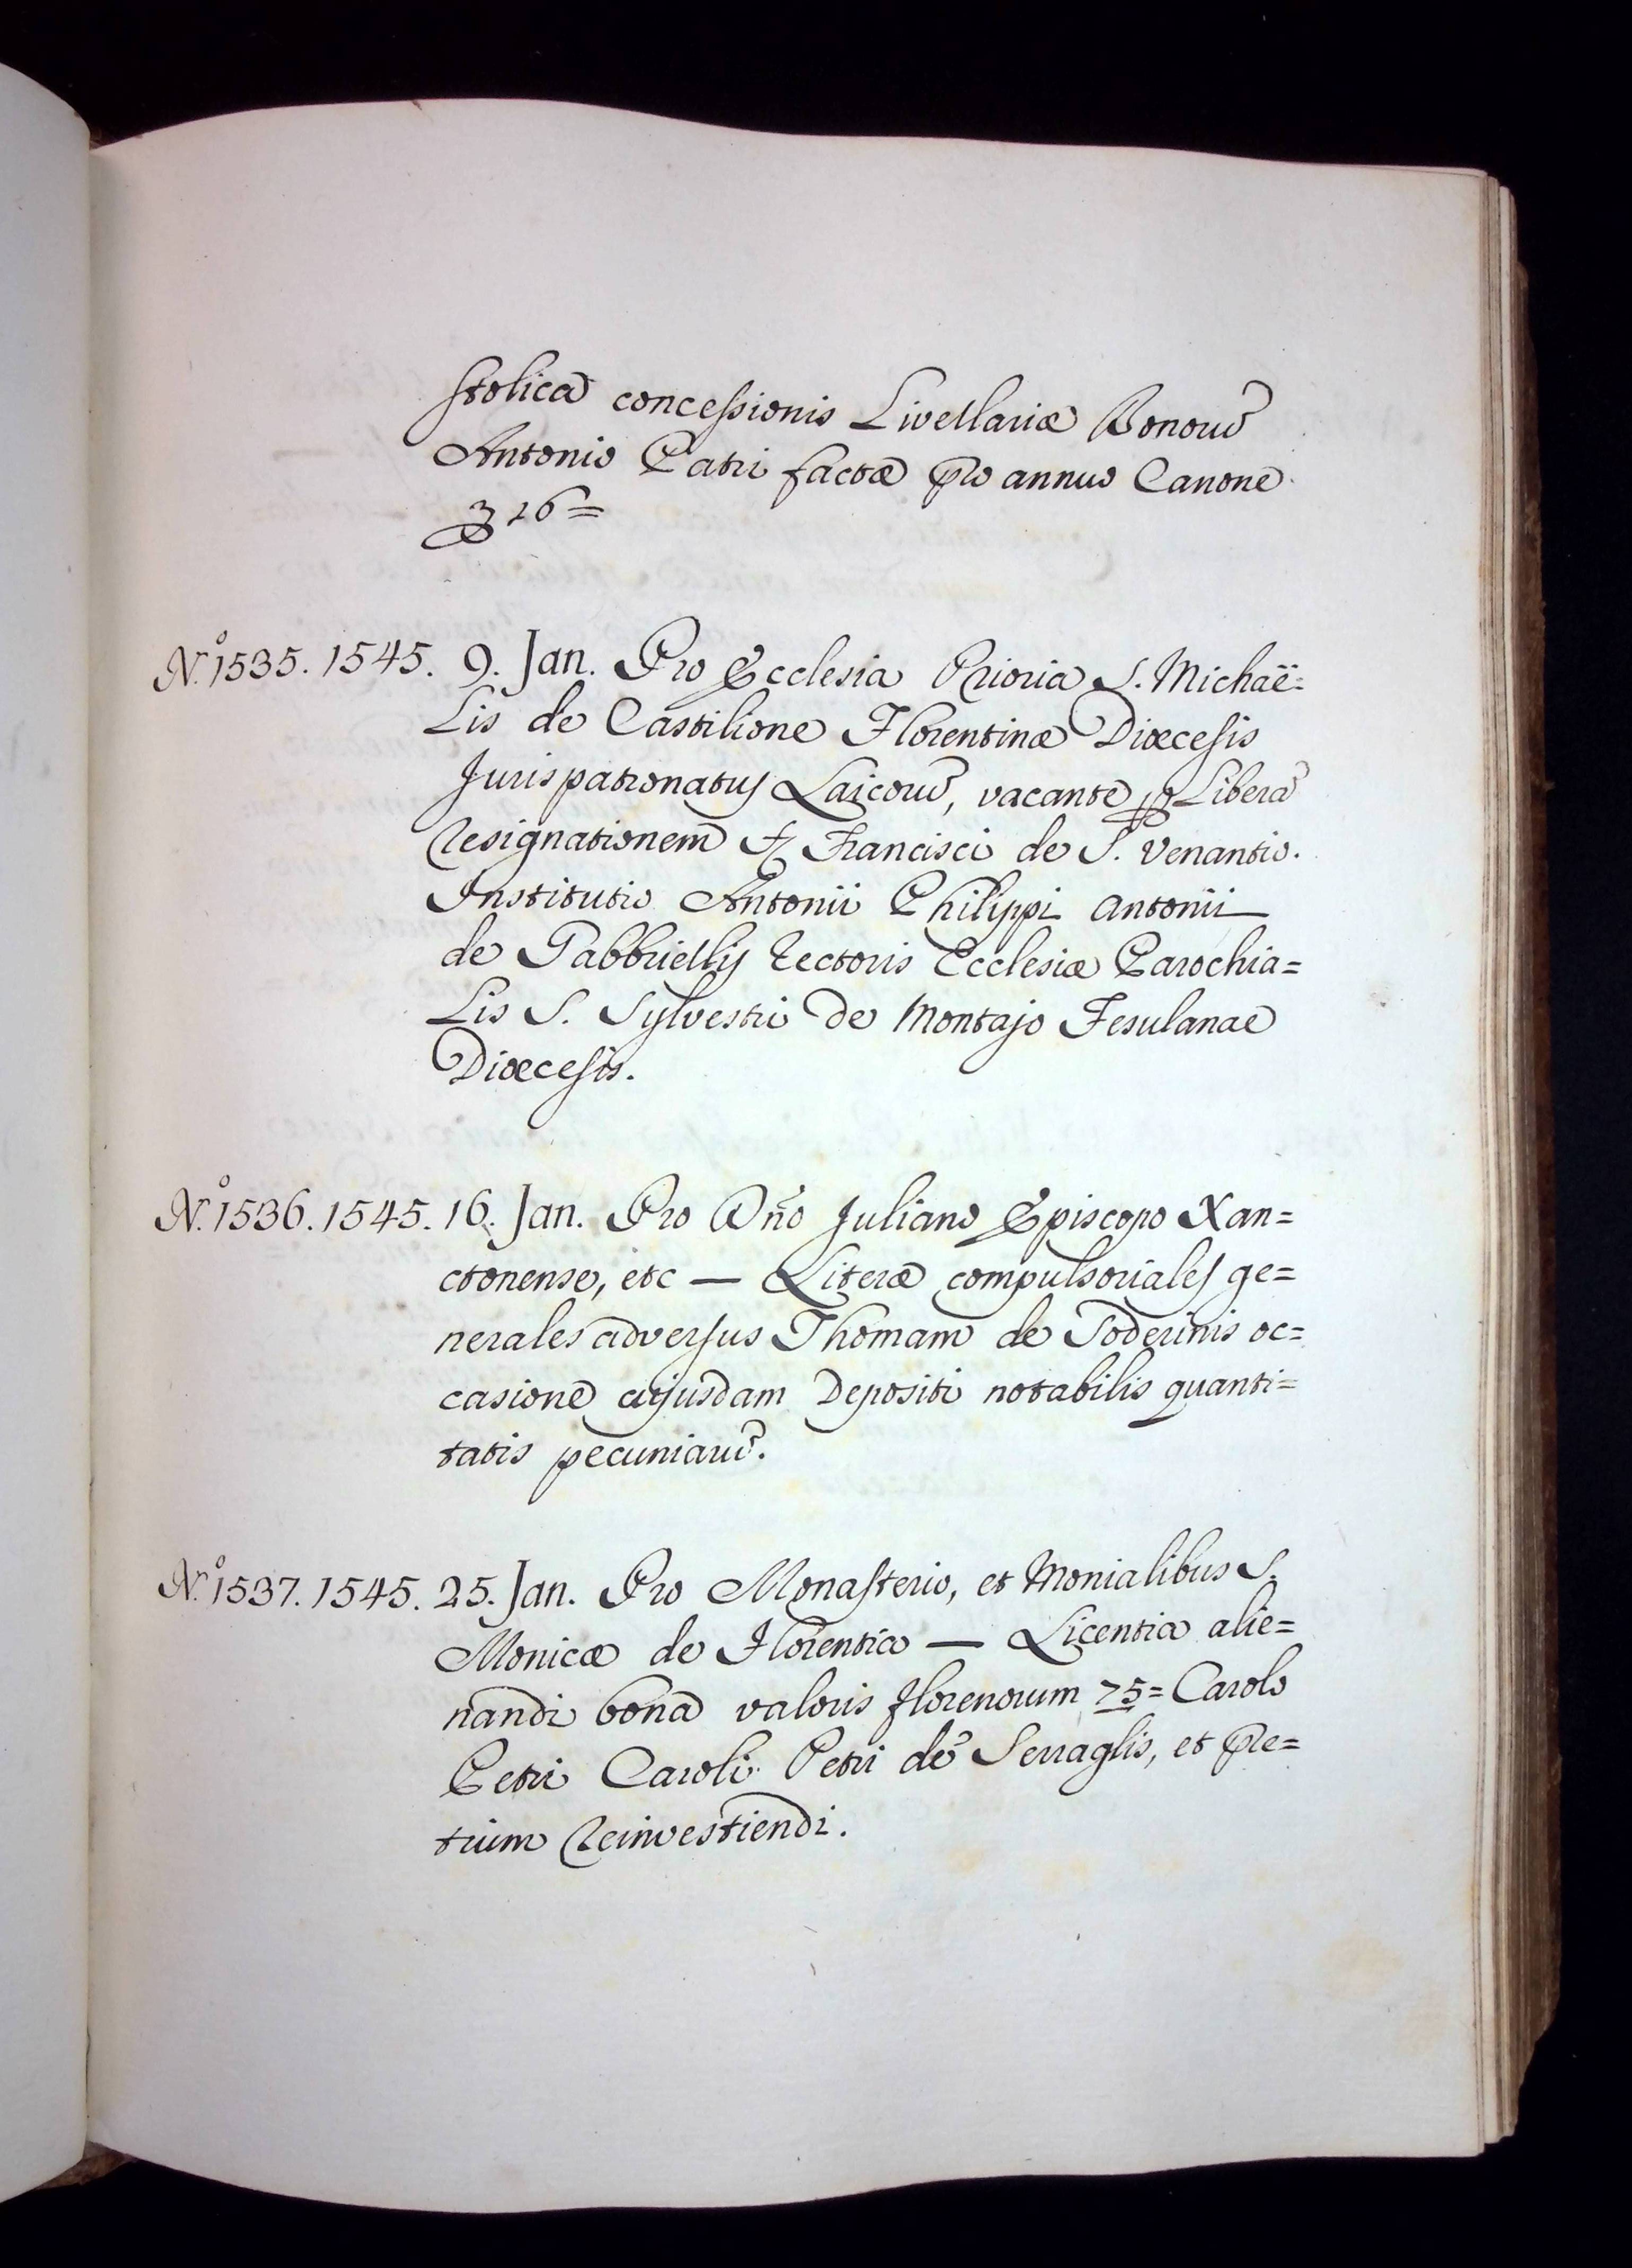 stolica concessionis Livellariæ Bonorũ
Antonio Patri factæ pro annuo Canone
16=
N.º 1535. 1545. 9. Jan. Pro Ecclesia Prioria S. Michaë=
lis de Castilione Florentinæ Diœcesis
Jurispatronatus Laicorũ, vacante p Liberã
Resignationem Francisci de S. Venantio.
Institutio Antonii Philippi Antonii
de Gabbriellis Rectoris Ecclesiæ Parochia=
lis S. Sylvestri de Montajo Fesulanae
Diœcesis.
N.º 1536. 1545. 16. Jan. Pro Dño Juliano Episcopo Xan=
ctonense, etc — Literæ compulsoriales ge=
nerales adversus Thomam de Soderinis oc=
casione cujusdam Depositi notabilis quanti=
tatis pecuniarũ.
N.º 1537. 1545. 25. Jan. Pro Monasterio, et Monialibus S.
Monicæ de Florentia — Licentia alie=
nandi bona valoris florenorum 75= Carolo
Petri Caroli Petri de Serraglis, et pre=
tium Reinvestiendi.